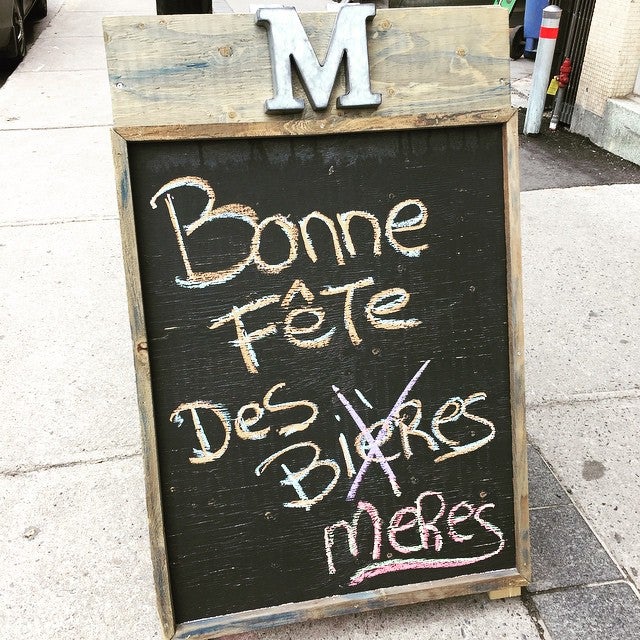 M
Bonne
Fête
Des
Bières
meres